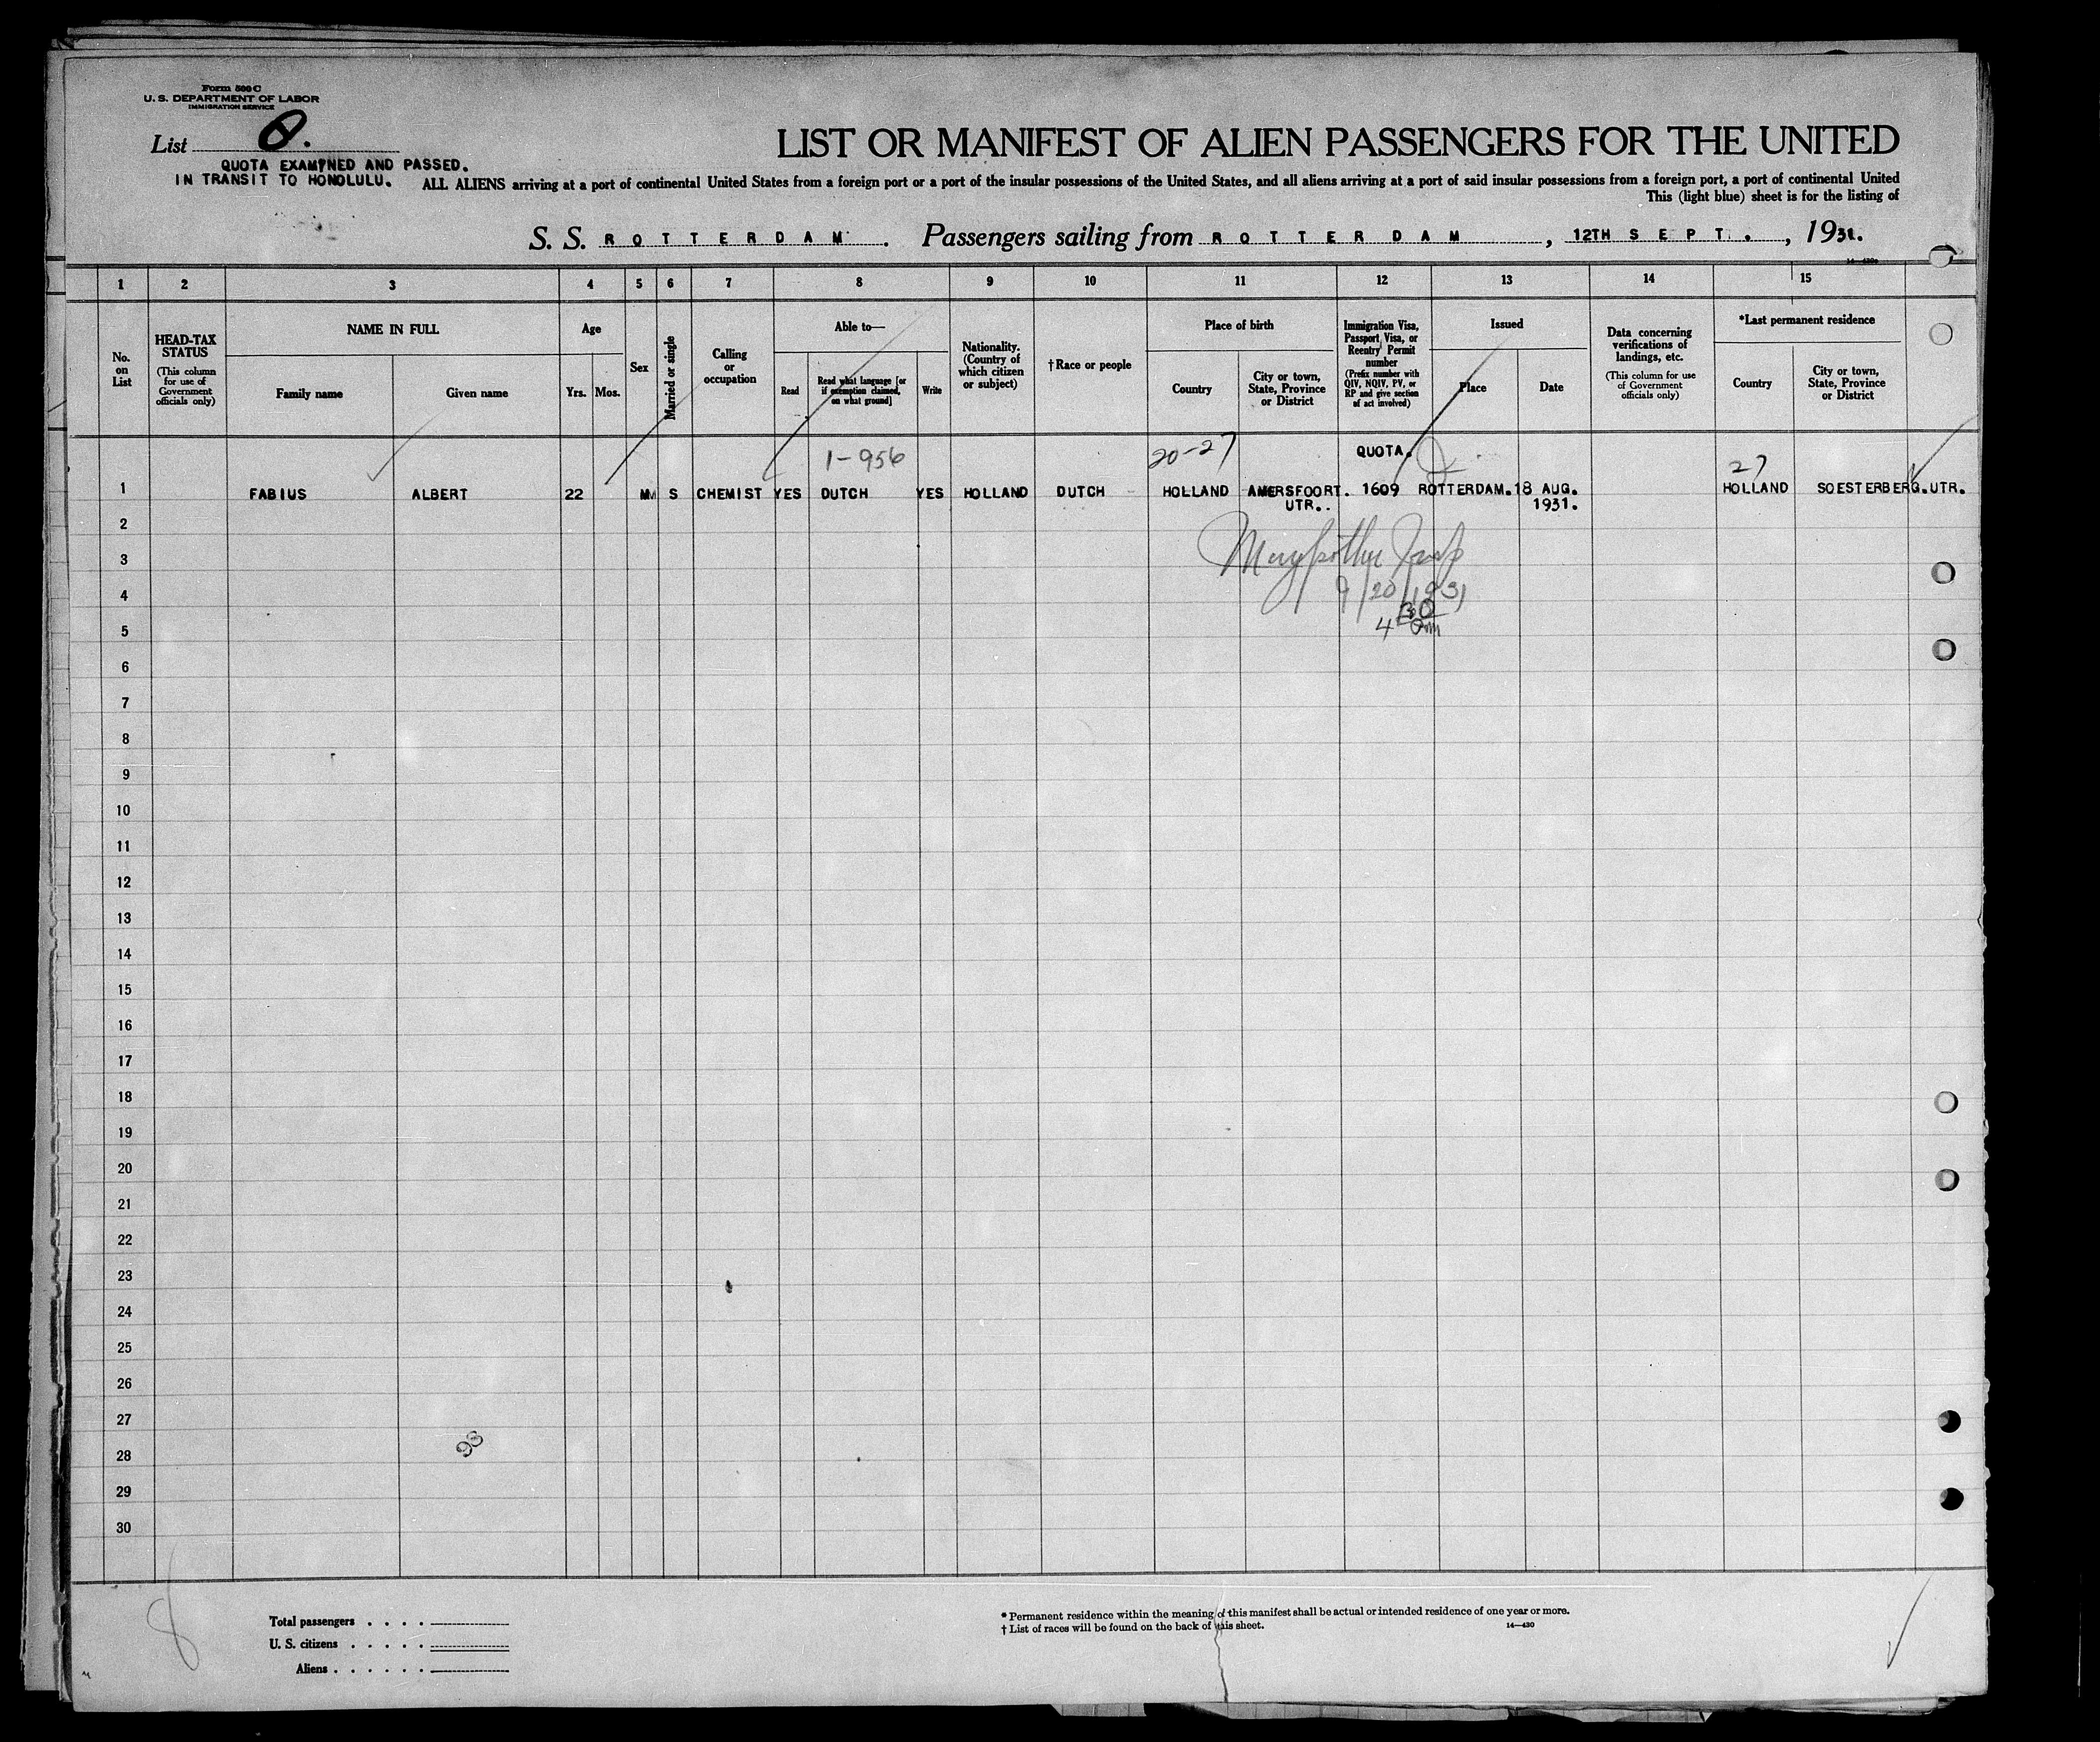 Form 500 C
U. S. DEPARTMENT OF LABOR
IMMIGRATION SERVICE
List
QUOTA EXAMINED AND PASSED.
IN TRANSIT TO HONOLULU.
LIST OR MANIFEST OF ALIEN PASSENGERS FOR THE UNITED
ALL ALIENS arriving at a port of continental United States from a foreign port or a port of the insular possessions of the United States, and all aliens arriving at a port of said insular possessions from a foreign port, a port of continental United
This (light blue) sheet is for the listing of
S. S. ROTTERDAM. Passengers sailing from ROTTERDAM, 12TH SEPT., 1931.
1 2 3 4 5 6 7 8 9 10 11 12 13 14 15
No. on List
HEAD-TAX STATUS
(This column for use of Government officials only)
NAME IN FULL
Family name
Given name
Age
Yrs.
Mos.
Sex
Married or single
Calling or occupation
Able to—
Read
Read what language [or if exemption claimed, on what ground]
Write
Nationality. (Country of which citizen or subject)
†Race or people
Place of birth
Country
City or town, State, Province or District
Immigration Visa, Passport Visa, or Reentry Permit number
(Prefix number with QIV, NQIV, PV, or RP and give section of act involved)
Issued
Place
Date
Data concerning verifications of landings, etc.
(This column for use of Government officials only)
*Last permanent residence
Country
City or town, State, Province or District
1-956 20-27 QUOTA. 27
1 FABIUS ALBERT 22 M S CHEMIST YES DUTCH YES HOLLAND DUTCH HOLLAND AMERSFOORT. 1609 ROTTERDAM. 18 AUG. HOLLAND SOESTERBERG.UTR.
UTR.. 1931.
2
3
9/20/1931
4
4 30 am
5
6
7
8
9
10
11
12
13
14
15
16
17
18
19
20
21
22
23
24
25
26
27
28
29
30
Total passengers . . . .
U. S. citizens . . . . .
Aliens . . . . . .
* Permanent residence within the meaning of this manifest shall be actual or intended residence of one year or more.
† List of races will be found on the back of this sheet.
14—430